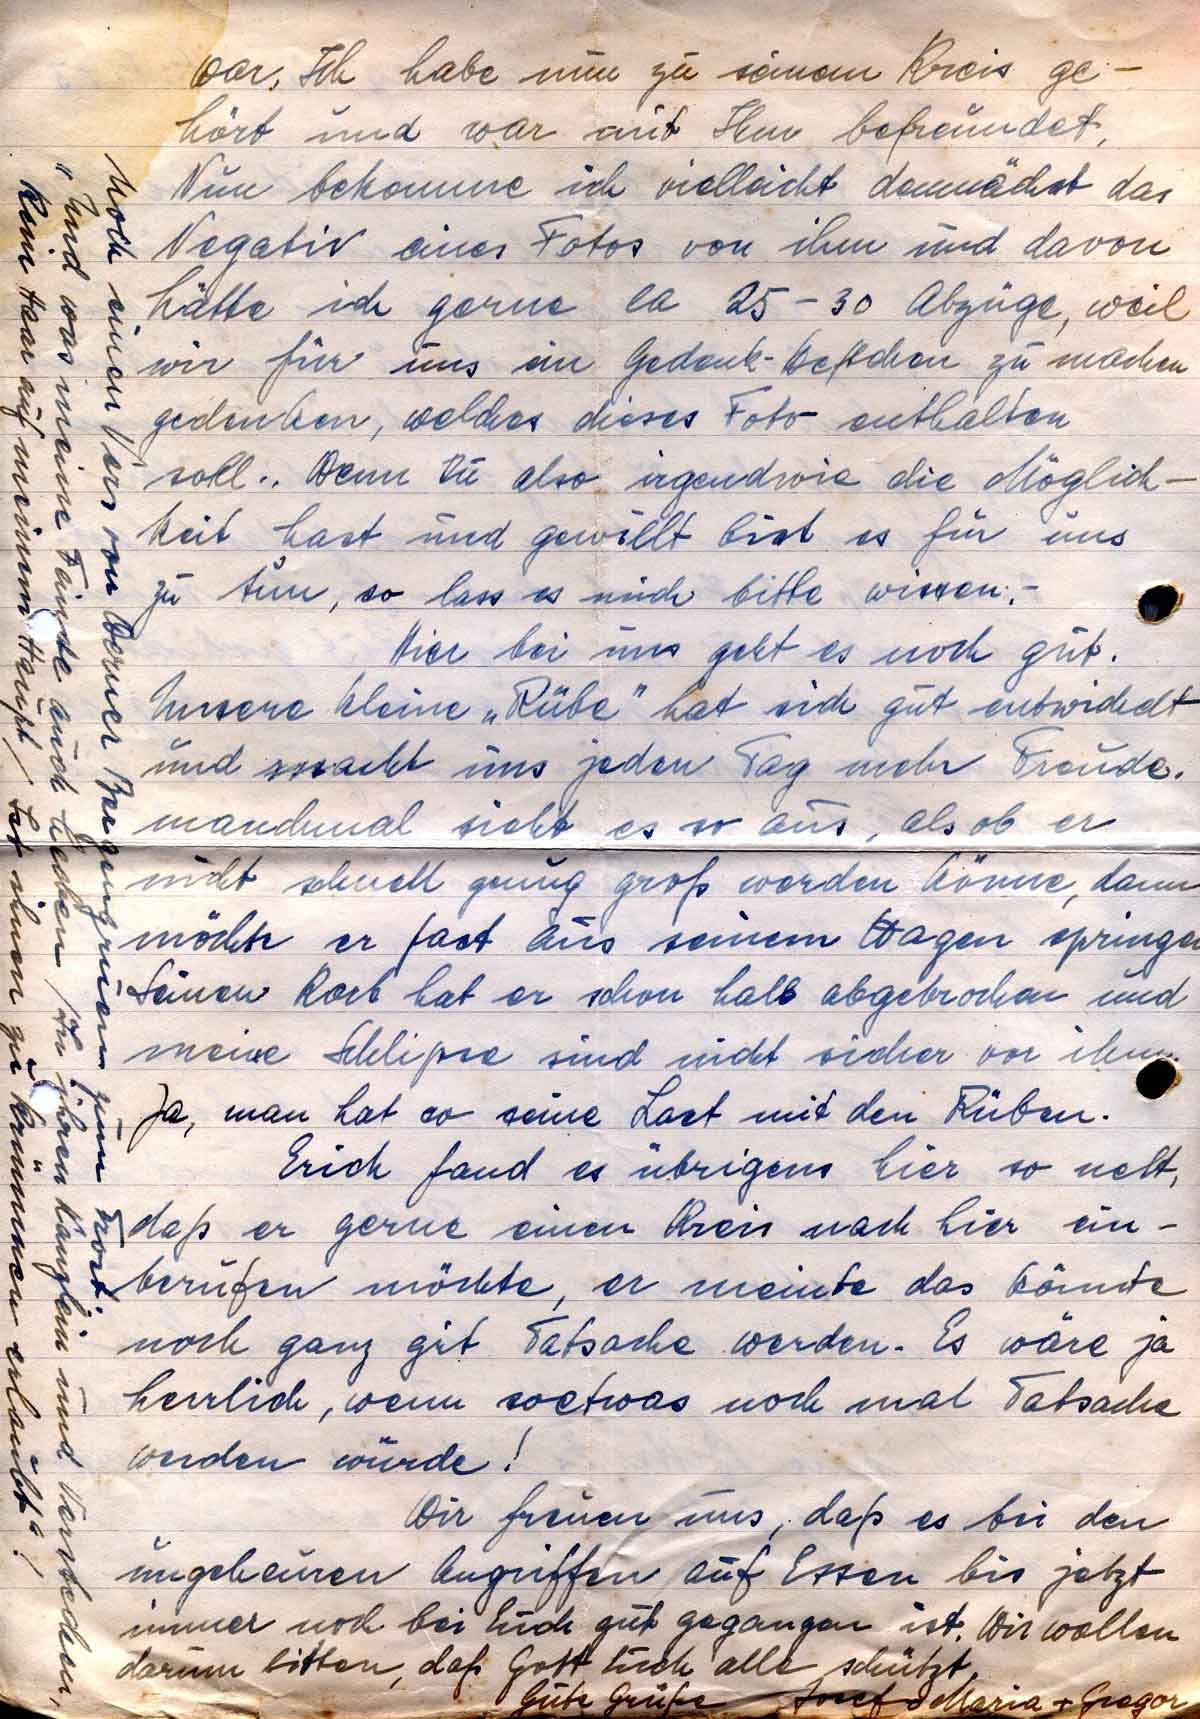 war. Ich habe nun zu seinem Kreis ge-
hört und war mit Ihm befreundet.
Nun bekomme ich vielleicht demnächst das
Negativ eines Fotos von ihm und davon
hätte ich gerne ca 25-30 Abzüge, weil
wir für uns ein Gedenk-Heftchen zu machen
gedenken, welches dieses Foto enthalten
soll.. Wenn Du also irgendwie die Möglich-
keit hast und gewillt bist es für uns
zu tun, so lass es mich bitte wissen.-
Hier bei uns geht es noch gut.
Unsere kleine „Rübe" hat sich gut entwickelt
und macht uns jeden Tag mehr Freude.
manchmal sieht es so aus, als ob er
nicht schnell genug groß werden könne, dann
möchte er fast aus seinem Wagen springen
Seinen Korb hat er schon halb abgebrochen und
meine Schlipse sind nicht sicher vor ihm.
Ja, man hat so seine Last mit den Rüben.
Erich fand es übrigens hier so nett,
daß er gerne einen Kreis nach hier ein-
berufen möchte, er meinte das könnte
noch ganz gut Tatsache werden. Es wäre ja
herrlich, wenn soetwas noch mal Tatsache
werden würde!
Wir freuen uns, daß es bei den
ungeheuren Angriffen auf Essen bis jetzt
immer noch bei Euch gut gegangen ist. Wir wollen
darum bitten, daß Gott Euch alle schützt.
Gute Grüße Josef + Maria + Gregor
Noch einen Vers von Werner Bergengruen zum Trost:
„Und was meine Feinde auch hecken / In ihren Kanzlein und Verstecken,
Kein Haar auf meinem Haupt / Ist ihnen zu krümmen erlaubt"!